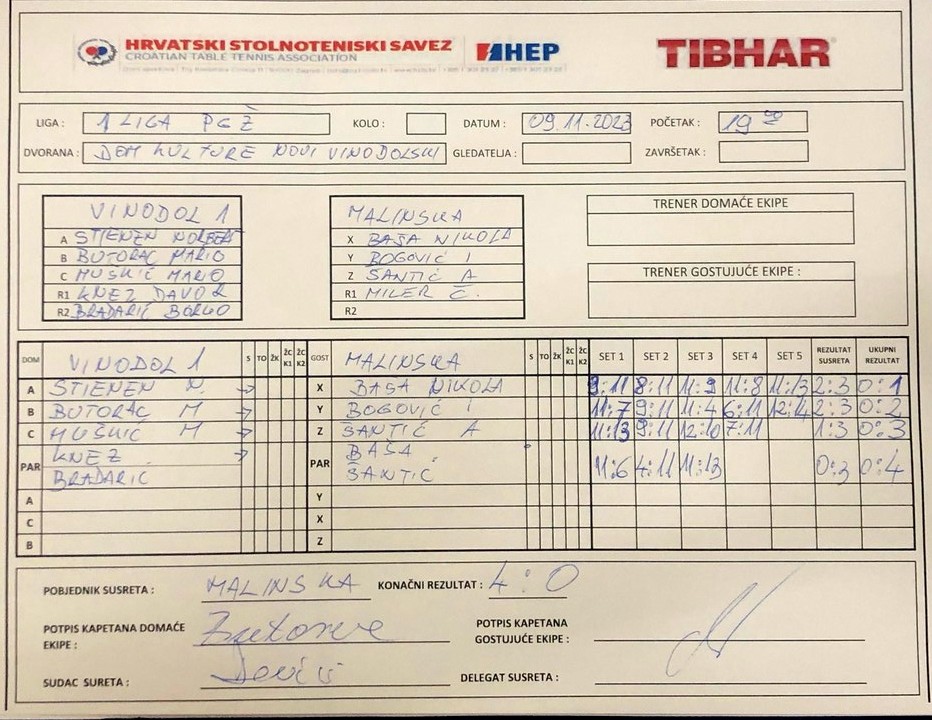 HRVATSKI STOLNOTENISKI SAVEZ
CROATIAN TABLE TENNIS ASSOCIATION
HEP
TIBHAR
LIGA : 1 LIGA PGŽ KOLO : DATUM : 09.11.2023 POČETAK : 19 00
DVORANA : DOM KULTURE NOVI VINODOLSKI GLEDATELJA : ZAVRŠETAK :
VINODOL 1 MALINSKA TRENER DOMAĆE EKIPE
A STIENEN NORBERT X BAŠA NIKOLA
B BUTORAC MARIO Y BOGOVIĆ I
C MUSKIĆ MARIO Z SANTIĆ A TRENER GOSTUJUĆE EKIPE :
R1 KNEZ DAVOR R1 MILER Č.
R2 BRADARIĆ BORKO R2
DOM VINODOL 1 S TO ŽK ŽC K1 ŽC K2 GOST MALINSKA S TO ŽK ŽC K1 ŽC K2 SET 1 SET 2 SET 3 SET 4 SET 5 REZULTAT SUSRETA UKUPNI REZULTAT
A STIENEN N. X BAŠA NIKOLA 9:11 8:11 11:9 11:8 11:13 2:3 0:1
B BUTORAC M Y BOGOVIĆ I 11:7 9:11 11:4 6:11 12:14 2:3 0:2
C MUŠKIĆ M Z ŠANTIĆ A 11:13 9:11 12:10 7:11 1:3 0:3
PAR KNEZ BRADARIĆ PAR BAŠA ŠANTIĆ 11:6 4:11 11:13 0:3 0:4
A Y
C X
B Z
POBJEDNIK SUSRETA : MALINSKA KONAČNI REZULTAT : 4:0
POTPIS KAPETANA DOMAĆE EKIPE : POTPIS KAPETANA GOSTUJUĆE EKIPE :
SUDAC SURETA : DELEGAT SUSRETA :